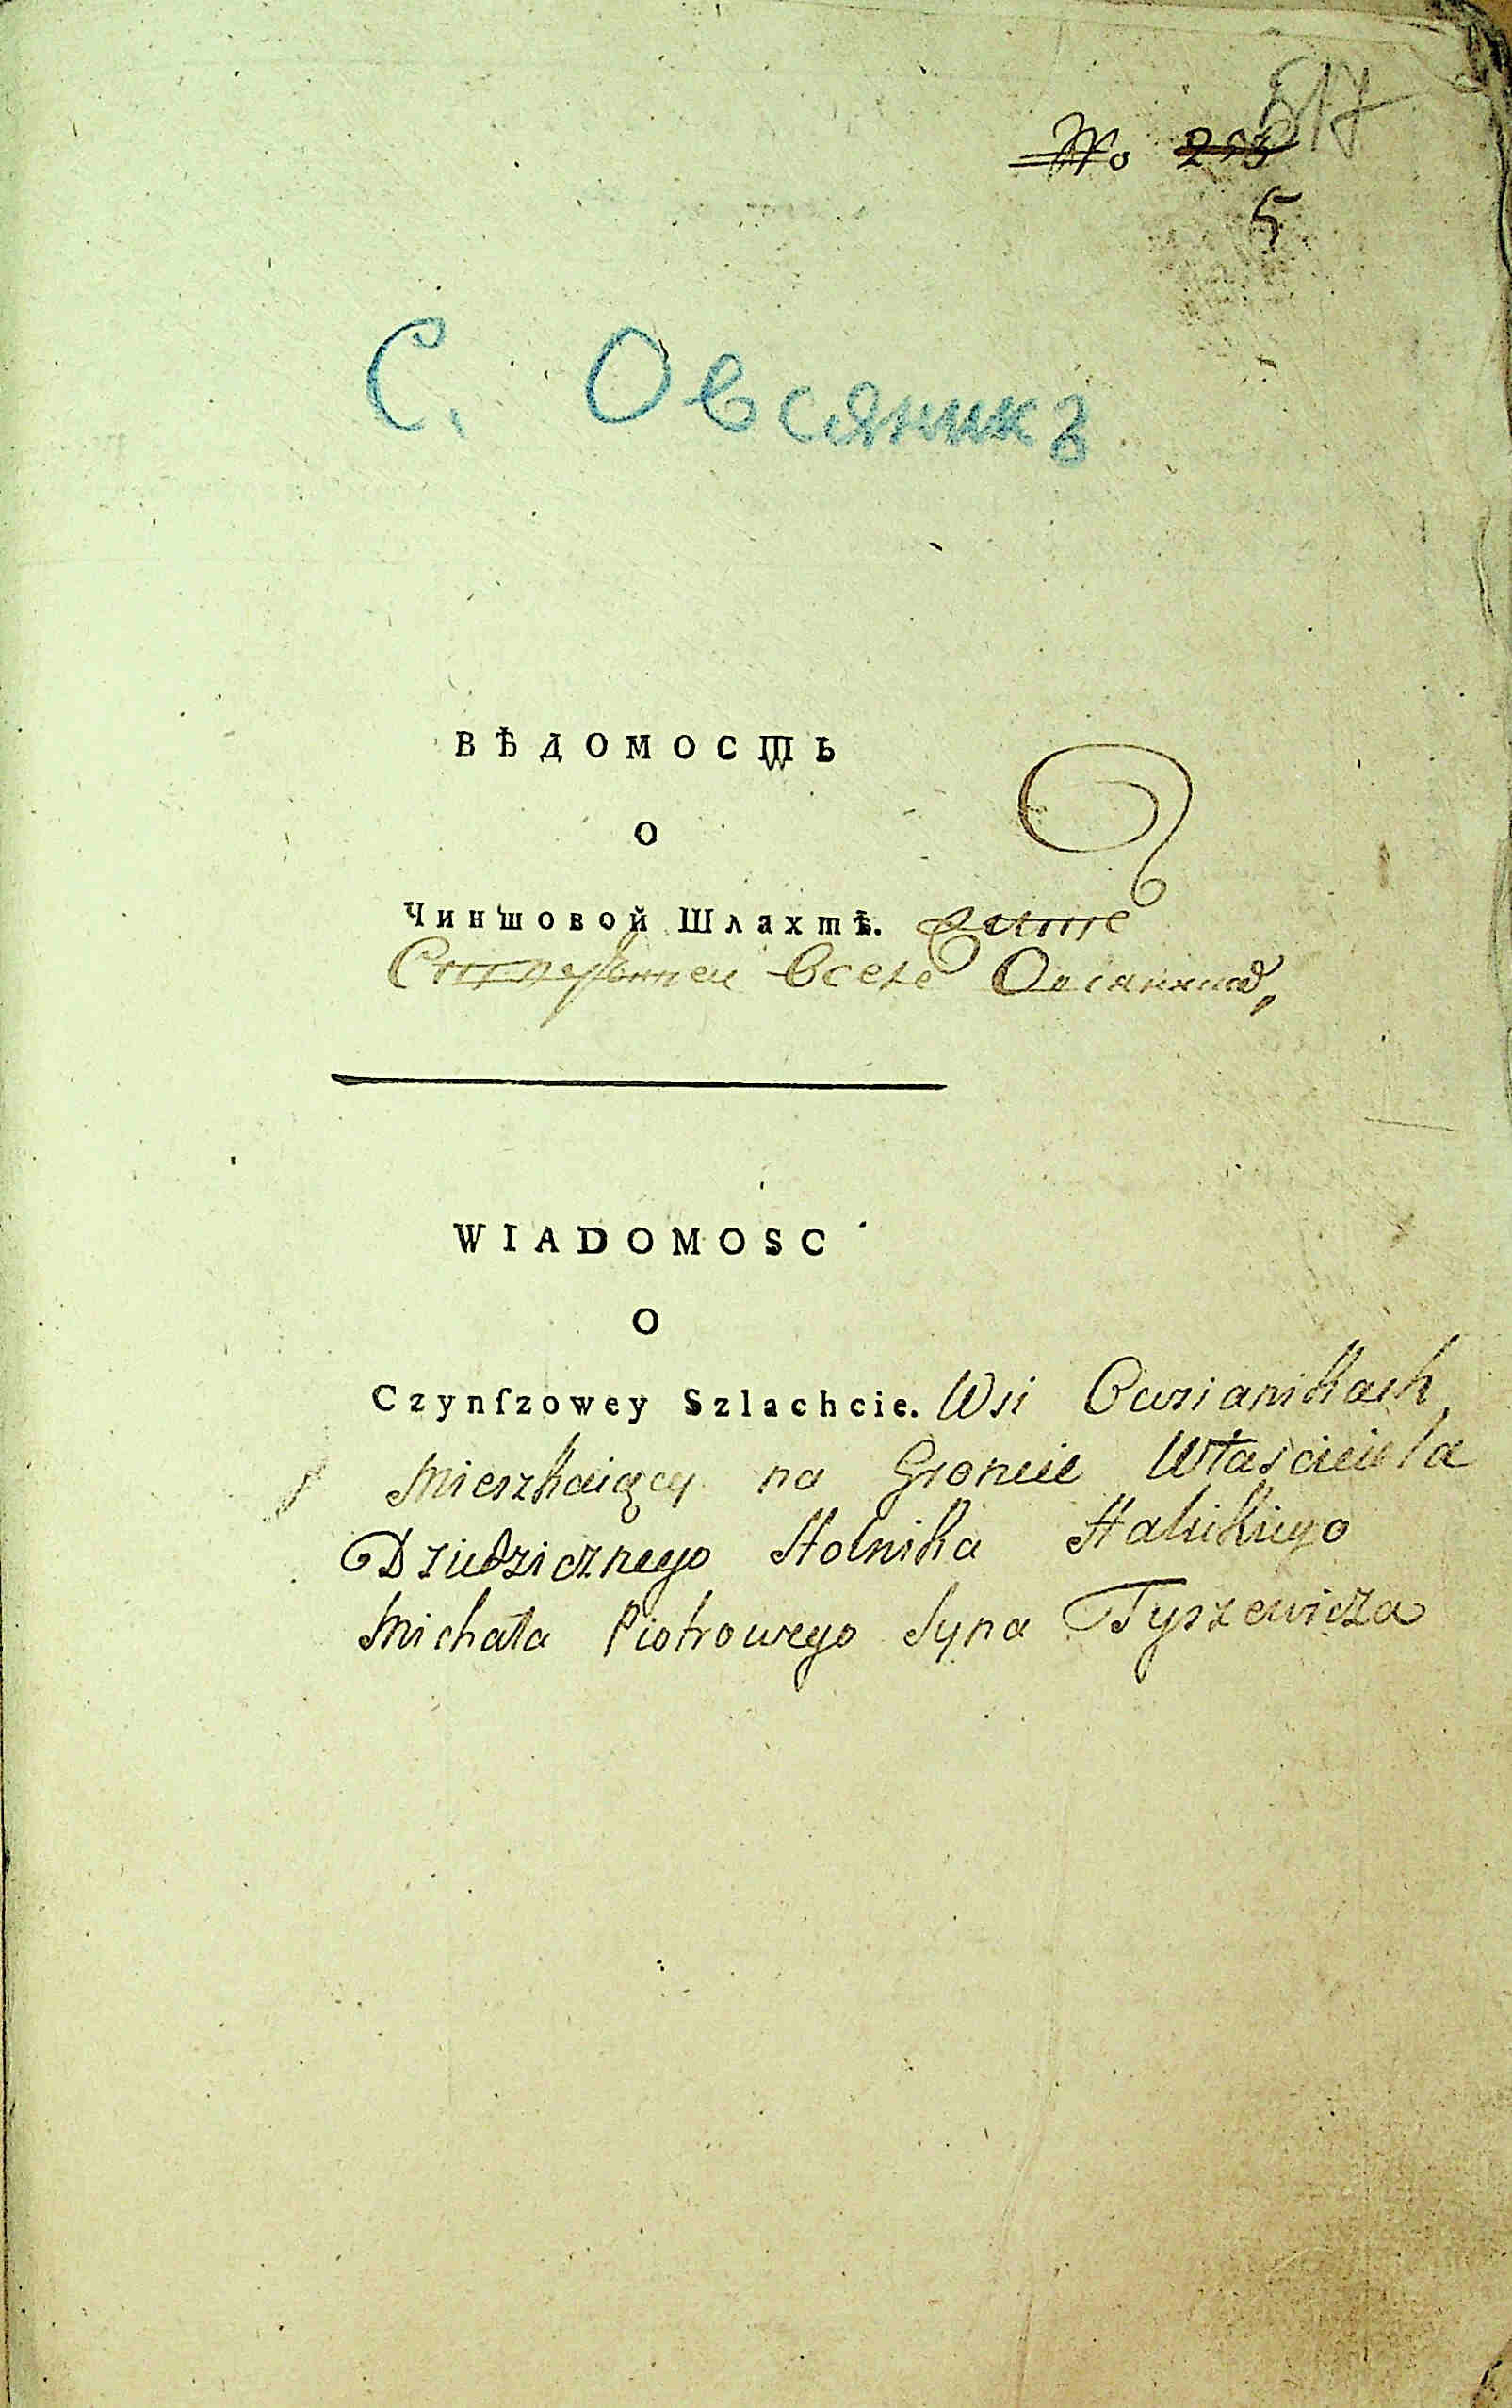 517
No 253
5
С. Овсяникъ
ВѢДОМОСТЬ
О
Чиншовой Шляхтѣ.
в селе
WIADOMOSC
O
Czynſzowey Szlachcie. Wsi Owsianikach
Mieszkaiący na Groncie Własciciela
Dziedzicznego Stolnika Halickiego
Michała Piotrowego Syna Tyszewicza